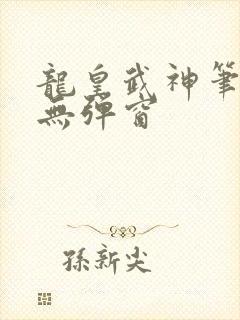 龍皇武神筆
無彈窗
孫新尖